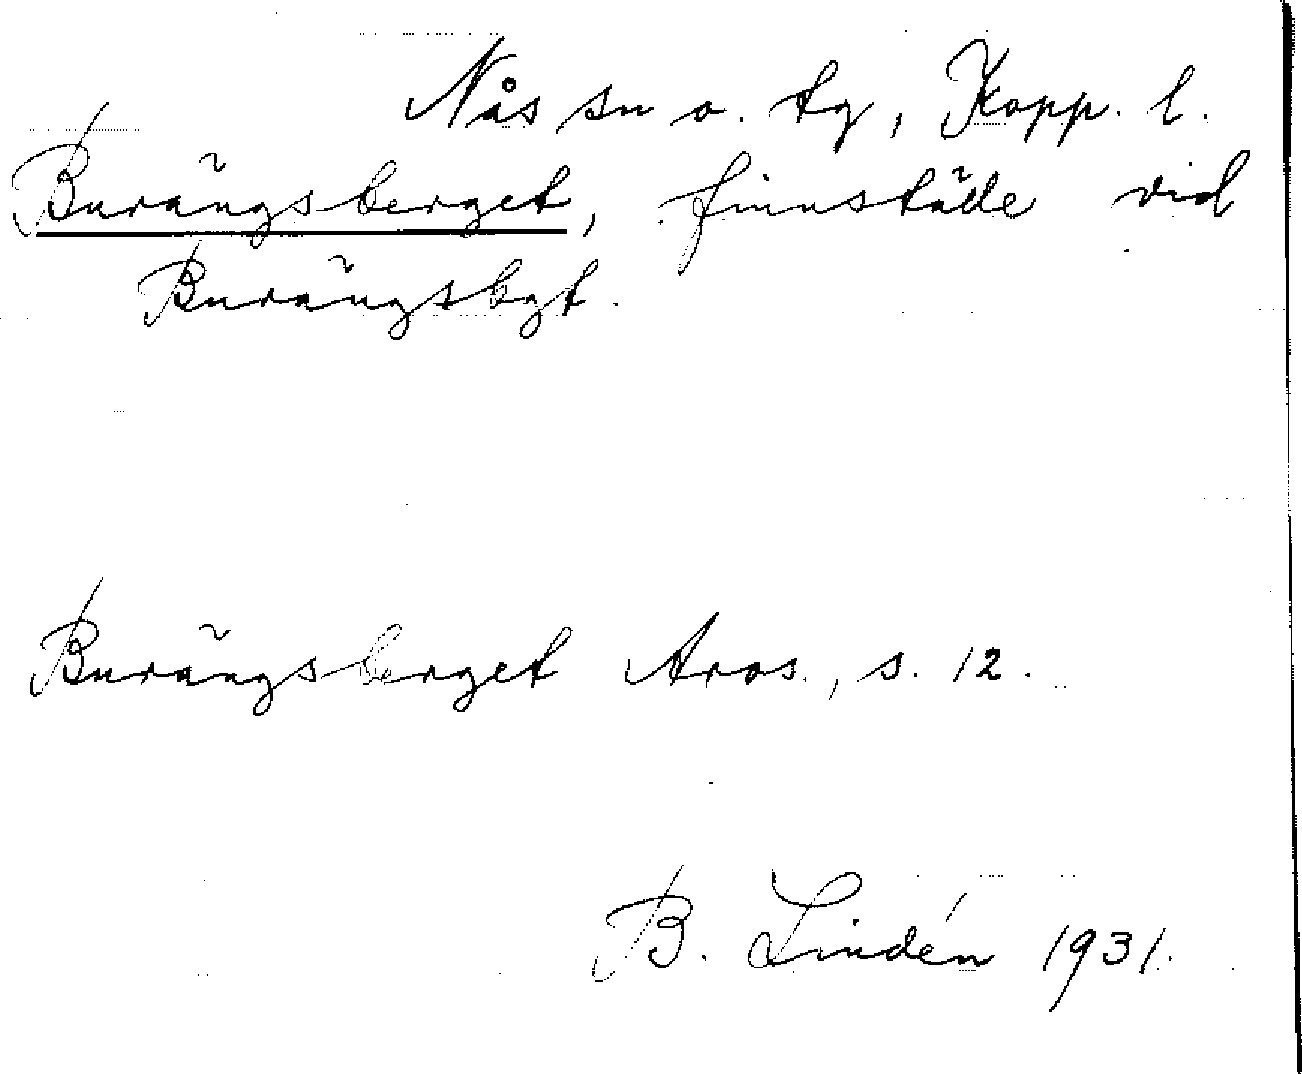 Nås sn o. tg, Kopp. l.
Burängsberget, finnställe vid
Burängsbgt.
Burängsberget Aros., s. 12.
B. Lindén 1931.